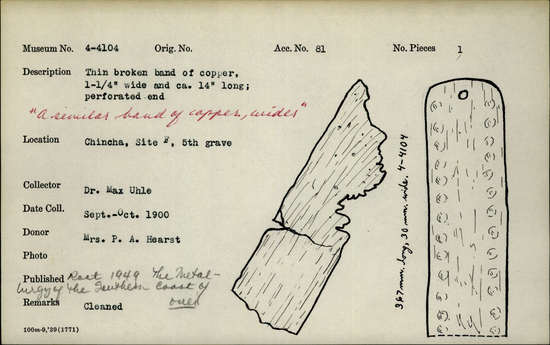 Museum No. 4-4104 Orig. No. Acc. No. 81 No. Pieces 1
Description Thin broken band of copper,
1-1/4" wide and ca. 14" long;
perforated end
"A similar band of copper, wider"
Location Chincha, Site F, 5th grave
Collector Dr. Max Uhle
Date Coll. Sept.-Oct. 1900
Donor Mrs. P. A. Hearst
Photo
Published Root 1949 The Metal-
lurgy of the Southern Coast of
Remarks Cleaned
100m-9,'39(1771)
367 mm. long, 30 mm. wide. 4-4104